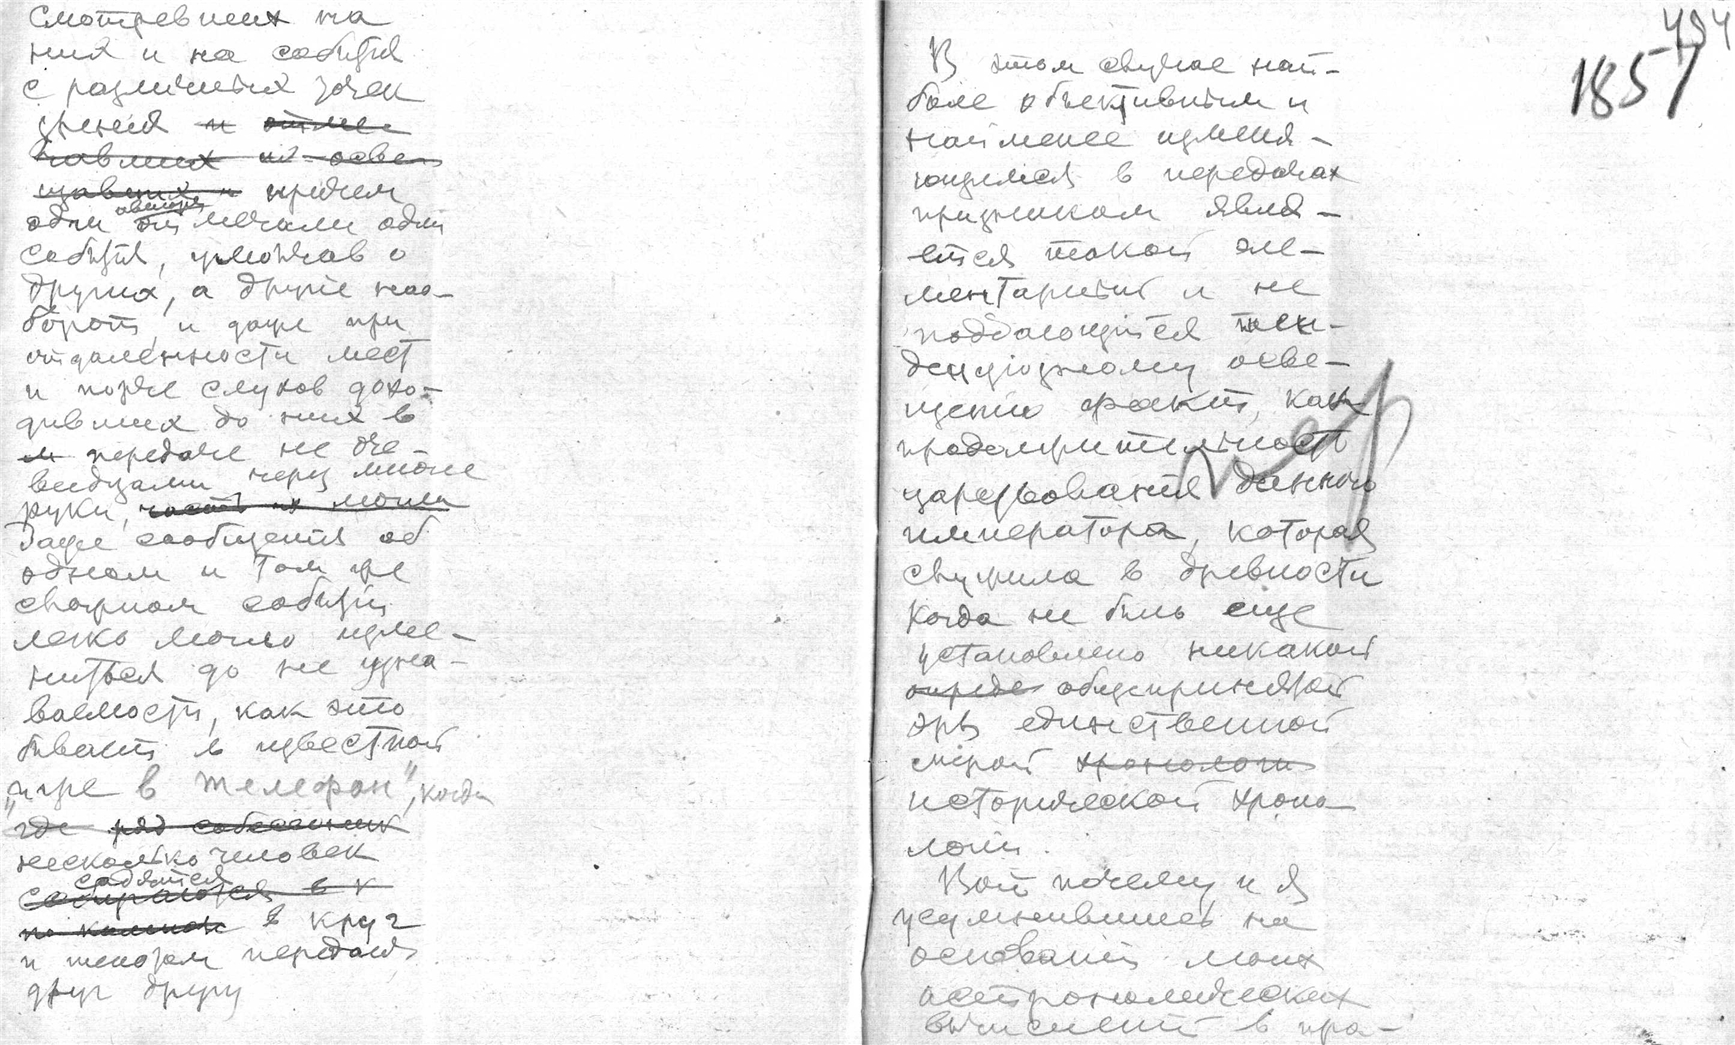 смотревших на
них и на события
с различных точек
зрения и отме
чавших их осве
щавших и причем
одни авторы отмечали одни
события, умолчав о
других, а другіе нао-
борот, и даже при
отдаленности мест
и порче слухов дохо-
дивших до них в
м передаче не оче-
видцами через многие
руки, часть их могли
Даже сообщения об
одном и том же
сложном событіи
легко могло изме-
ниться до не узна-
ваемости, как это
бывает в известной
"игре в телефон", когда
где ряд собеседник
несколько человек
садятся
собираются в к
по комнат в круг
и шепотом передают
друг другу
494
1857
В этом случае наи-
более объективным и
наименее изменя-
ющимся в передачах
признаком явля-
ется такой эле-
ментарный и не
поддающійся тен-
денціозному осве-
щенію факт, как
продолжительность
царствования данного
императора, которая
служила в древности
когда не было еще
установлено никакой
опреде общепринятой
эры единственной
мѣрой хронологи
исторической хроно
логіи.
Вот почему и я
усумнившись на
основаніи моих
астрономических
вычислений в пра-